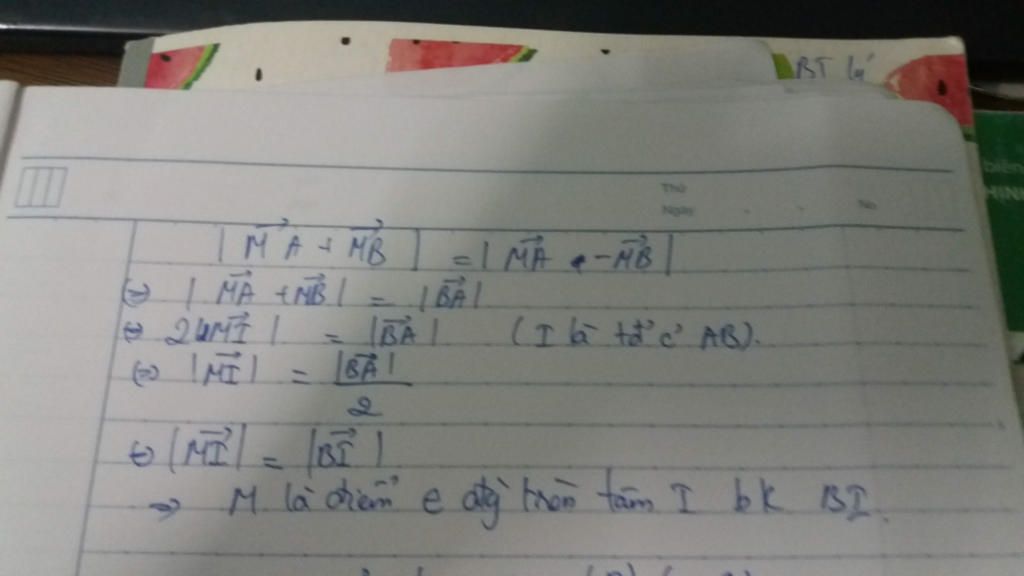 BT lý
Thứ
Ngày
No
|MA→ + MB→| = |MA→ - MB→|
⇔ |MA→ + MB→| = |BA→|
⇔ 2|MI→| = |BA→| (I là tđ' c' AB).
⇔ |MI→| = |BA→| / 2
⇔ |MI→| = |BI→|
⇒ M là điểm e đtg tròn tâm I bk BI.